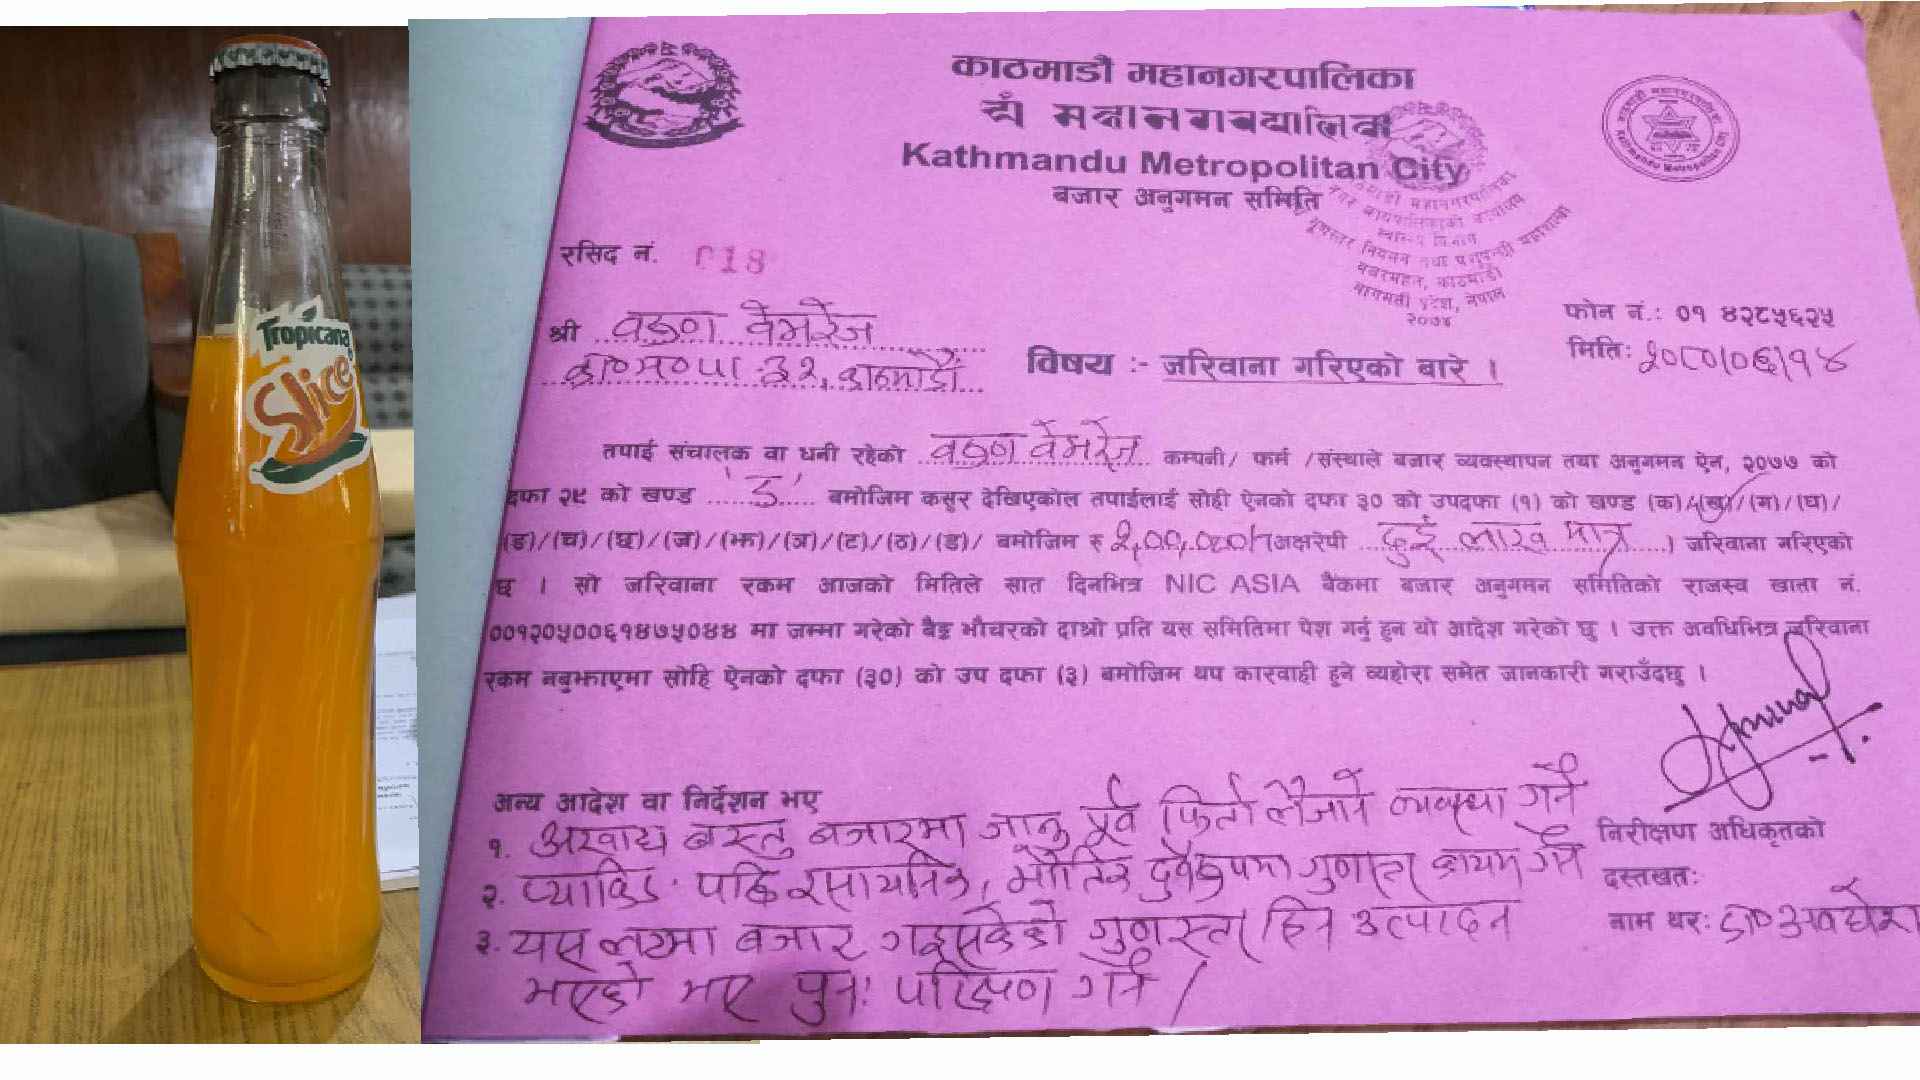 Tropicana
Slice
काठमाडौं महानगरपालिका
Kathmandu Metropolitan City
बजार अनुगमन समिति
काठमाडौं महानगरपालिका
Kathmandu Metropolitan City
काठमाडौं महानगरपालिका
नगर कार्यपालिकाको कार्यालय
स्वास्थ्य विभाग
बबरमहल, काठमाडौं
बागमती प्रदेश, नेपाल
२०७४
रसिद नं. 018
फोन नं.: ०१ ४२८५६२५
मिति: २०८०/०६/१४
श्री वरुण वेभरेज
का०म०पा ३२, काठमाडौं
विषय :- जरिवाना गरिएको बारे ।
तपाई संचालक वा धनी रहेको वरुण वेभरेज कम्पनी/ फर्म /संस्थाले बजार व्यवस्थापन तथा अनुगमन ऐन, २०७७ को
दफा २९ को खण्ड 'ड' बमोजिम कसुर देखिएकोले तपाईलाई सोही ऐनको दफा ३० को उपदफा (१) को खण्ड (क)/(ख)/(ग)/(घ)/
(ङ)/(च)/(छ)/(ज)/(झ)/(ञ)/(ट)/(ठ)/(ड)/ बमोजिम रु २,००,०००/- अक्षरेपी दुई लाख मात्र ) जरिवाना गरिएको
छ । सो जरिवाना रकम आजको मितिले सात दिनभित्र NIC ASIA बैंकमा बजार अनुगमन समितिको राजस्व खाता नं.
००१२०५००६१४७५०४४ मा जम्मा गरेको बैङ्क भौचरको दाश्रो प्रति यस समितिमा पेश गर्नु हुन यो आदेश गरेको छु । उक्त अवधिभित्र जरिवाना
रकम नबुझाएमा सोहि ऐनको दफा (३०) को उप दफा (३) बमोजिम थप कारवाही हुने व्यहोरा समेत जानकारी गराउँदछु ।
अन्य आदेश वा निर्देशन भए
१. अखाद्य बस्तु बजारमा जानु पूर्व फिर्ता लैजाने व्यवस्था गर्ने
२. प्याकिङ पछि रसायनिक, भौतिक दुवैरुपमा गुणस्तर कायम गर्ने
३. यस लटमा बजार गइसकेको गुणस्तर हिन उत्पादन
भएको भए पुन: परिक्षण गर्ने ।
निरीक्षण अधिकृतको
दस्तखत:
नाम थर: डा० अवधेश